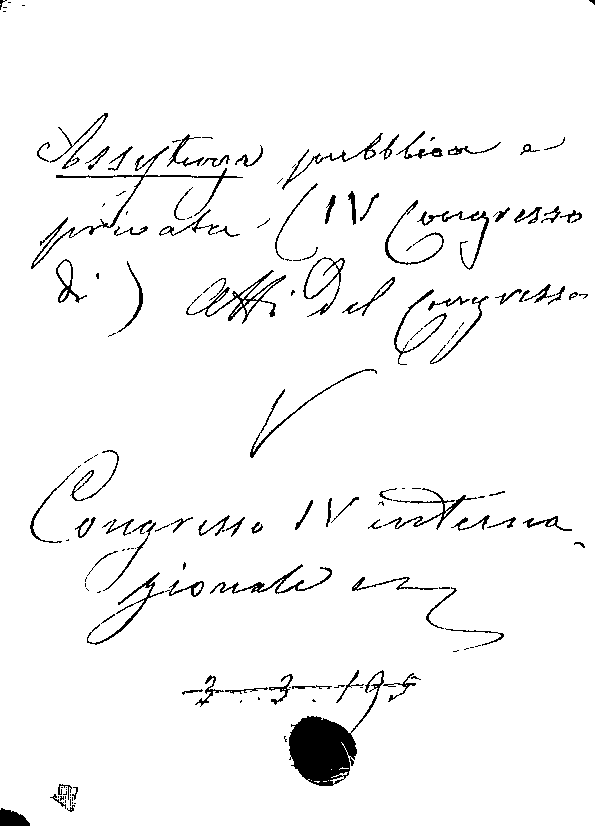 Assistenza pubblica e
privata (IV Congresso
di) Atti del Congresso
V
Congresso IV interna-
zionale
3..3.195